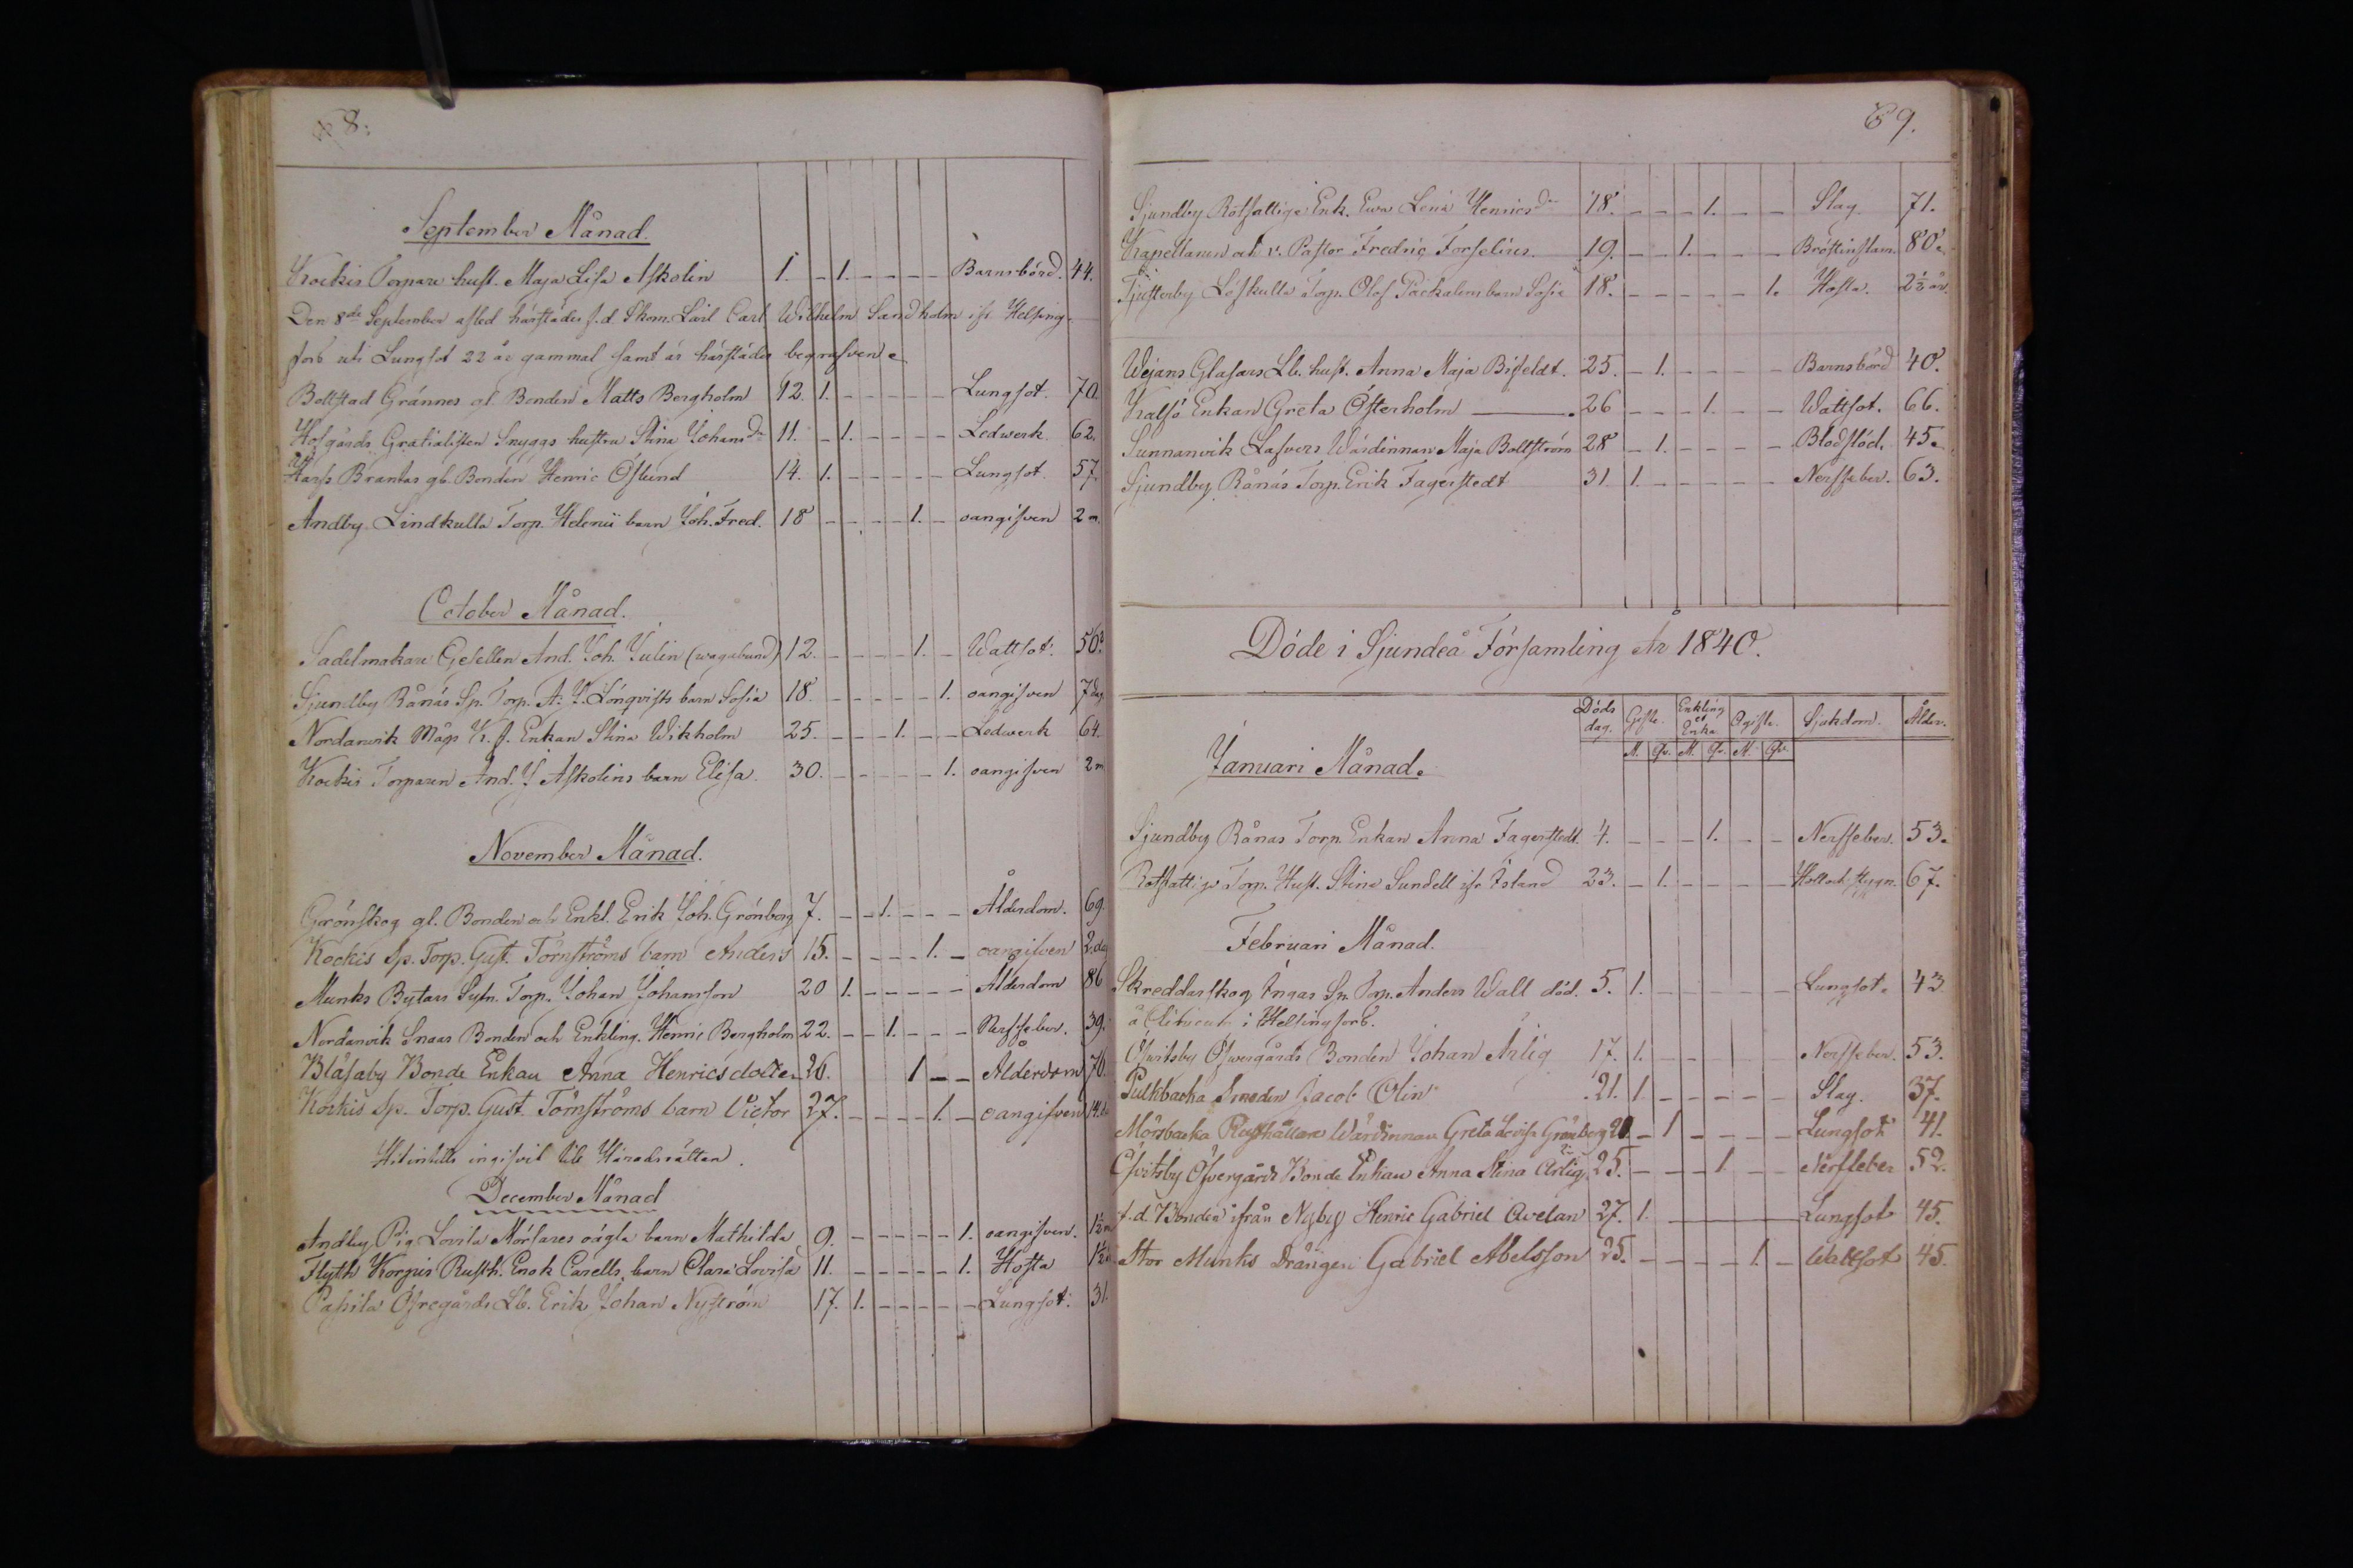 68.
September Månad.
Kockis Torpare hust. Maja Lisa Askolin 1. - 1. - - - - Barnsbörd. 44.
Den 8de September afled härstädes f.d. Skom. Lärl. Carl Wilhelm Sandholm ifr. Helsing-
fors uti Lungsot 22 år gammal samt är härstädes begrafven.
Bollstad Grännes gl. Bonden Matts Bergholm 12. 1. - - - - - Lungsot. 70.
Hofgårds Gratialisten Snyggs hustru Stina Johansdr 11. - 1. - - - - Ledwerk. 62.
Harfs Brantas gl. Bonden Henric Öslund 14. 1. - - - - - Lungsot. 57.
Andby Lindkulla Torp. Helenii barn Joh. Fred. 18 - - - - 1. - oangifven 2 m.
October Månad.
Sadelmakare Gesellen And. Joh. Julin (wagabund) 12. - - - - 1. - Wattsot. 50.
Sjundby Rånäs Sp. Torp. A. J. Lönqvists barn Sofia 18 - - - - - 1. oangifven 7 dag
Nordanvik Mågs K. J. Enkan Stina Wikholm 25. - - - 1. - - Ledwerk 64.
Kockis Torparen And. J. Askolins barn Elisa. 30. - - - - - 1. oangifven 2 m
November Månad.
Grönskog gl. Bonden och Enkl. Erik Joh. Grönberg 7. - - 1. - - - Ålderdom. 69.
Kockis Sp. Torp. Gust. Törnströms barn Anders 15. - - - - 1. - oangifven 2 dag
Munks Bytars Sytn. Torp. Johan Johansson 20 1. - - - - - Ålderdom 86
Nordanvik Snaas Bonden och Enkling. Henric Bergholm 22. - - 1. - - - Nerffeber. 39.
Blåsaby Bonde Enkan Anna Henricsdotter 26. 1 - - Ålderdom 70.
Kockis Sp. Torp. Gust. Törnströms barn Victor 27. - - - - 1. - oangifven 14 d.
Hitintills ingifvit till Häradsrätten.
December Månad
Andby Pig. Lovisa Mörtares oägta barn Mathilda 9. - - - - - 1. oangifven. 1½ m
Flyth Korpis Rusth. Enok Carells barn Clara Lovisa 11. - - - - - 1. Hosta 1½
Passila Öfregårds Lb. Erik Johan Nyström 17. 1. - - - - - Lungsot. 31.
69.
Sjundby Rotfattige Enk. Ewa Lena Henricsdr 18. - - - 1. - - Slag. 71.
Kapellanen och v. Pastor Fredric Forselius. 19. - - 1. - - - Bröstinflam. 80.
Tjusterby Löfkulla Torp. Olof Packalens barn Sofia 18. - - - - - 1. Hosta. 2½ år
Wejans Glasars Lb. hust. Anna Maja Bifeldt. 25. - 1. - - - - Barnsbörd 40.
Kalfö Enkan Greta Österholm 26 - - - 1. - - Wattsot. 66.
Sunnanvik Lasvers Wärdinnan Maja Bollström 28 - 1. - - - - Blodstöd. 45.
Sjundby Rånäs Torp. Erik Fagerstedt 31 1. - - - - - Nerffeber. 63.
Döde i Sjundeå Församling År 1840.
Döds dag. Gifte. Enkling o Enka Ogifte. Sjukdom. Ålder.
M. Qv. M. Qv. M. Qv.
Januari Månad.
Sjundby Rånas Torp. Enkan Anna Fagerstedt 4. - - - 1. - - Nerffeber. 53.
Rotfattige Torp. Hust. Stina Sundell ifr. Esland 23. - 1. - - - - Håll och Stygn. 67.
Februari Månad.
Skreddarskog Ingas Sp. Torp. Anders Wall död. 5. 1. - - - - - Lungsot. 43
å Clinicum i Helsingfors.
Öfvitsby Öfvergårds Bonden Johan Ärlig 17. 1. - - - - - Nerffeber. 53.
Pulkbacka Smeden Jacob Olin 21. 1. - - - - - Slag. 37.
Mörsbacka Rusthållare Wärdinnan Greta Lovisa Grönberg 21. - 1 - - - - Lungsot 41.
Öfvitsby Öfvergårds Bonde Enkan Anna Stina Ärlig 25. - - - 1. - - Nerffeber 52.
f.d. Bonden ifrån Nyby Henric Gabriel Avelan 27. 1. Lungsot 45.
Stor Munks Drängen Gabriel Abelsson 25. - - - - 1. - Wattsot 45.